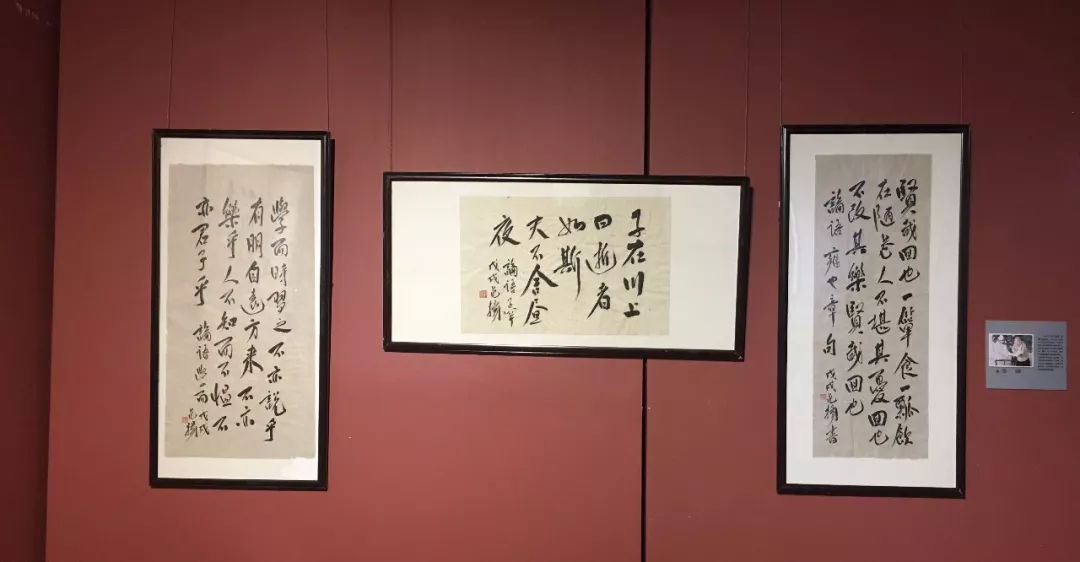 學而時習之不亦說乎
有朋自遠方来不亦
樂乎人不知而不慍不
亦君子乎 論語學而 戊戌
子在川上
曰逝者
如斯
夫不舍昼
夜
論語子罕
戊戌
賢哉回也一簞食一瓢飲
在陋巷人不堪其憂回也
不改其樂賢哉回也
論語雍也章句 戊戌 書